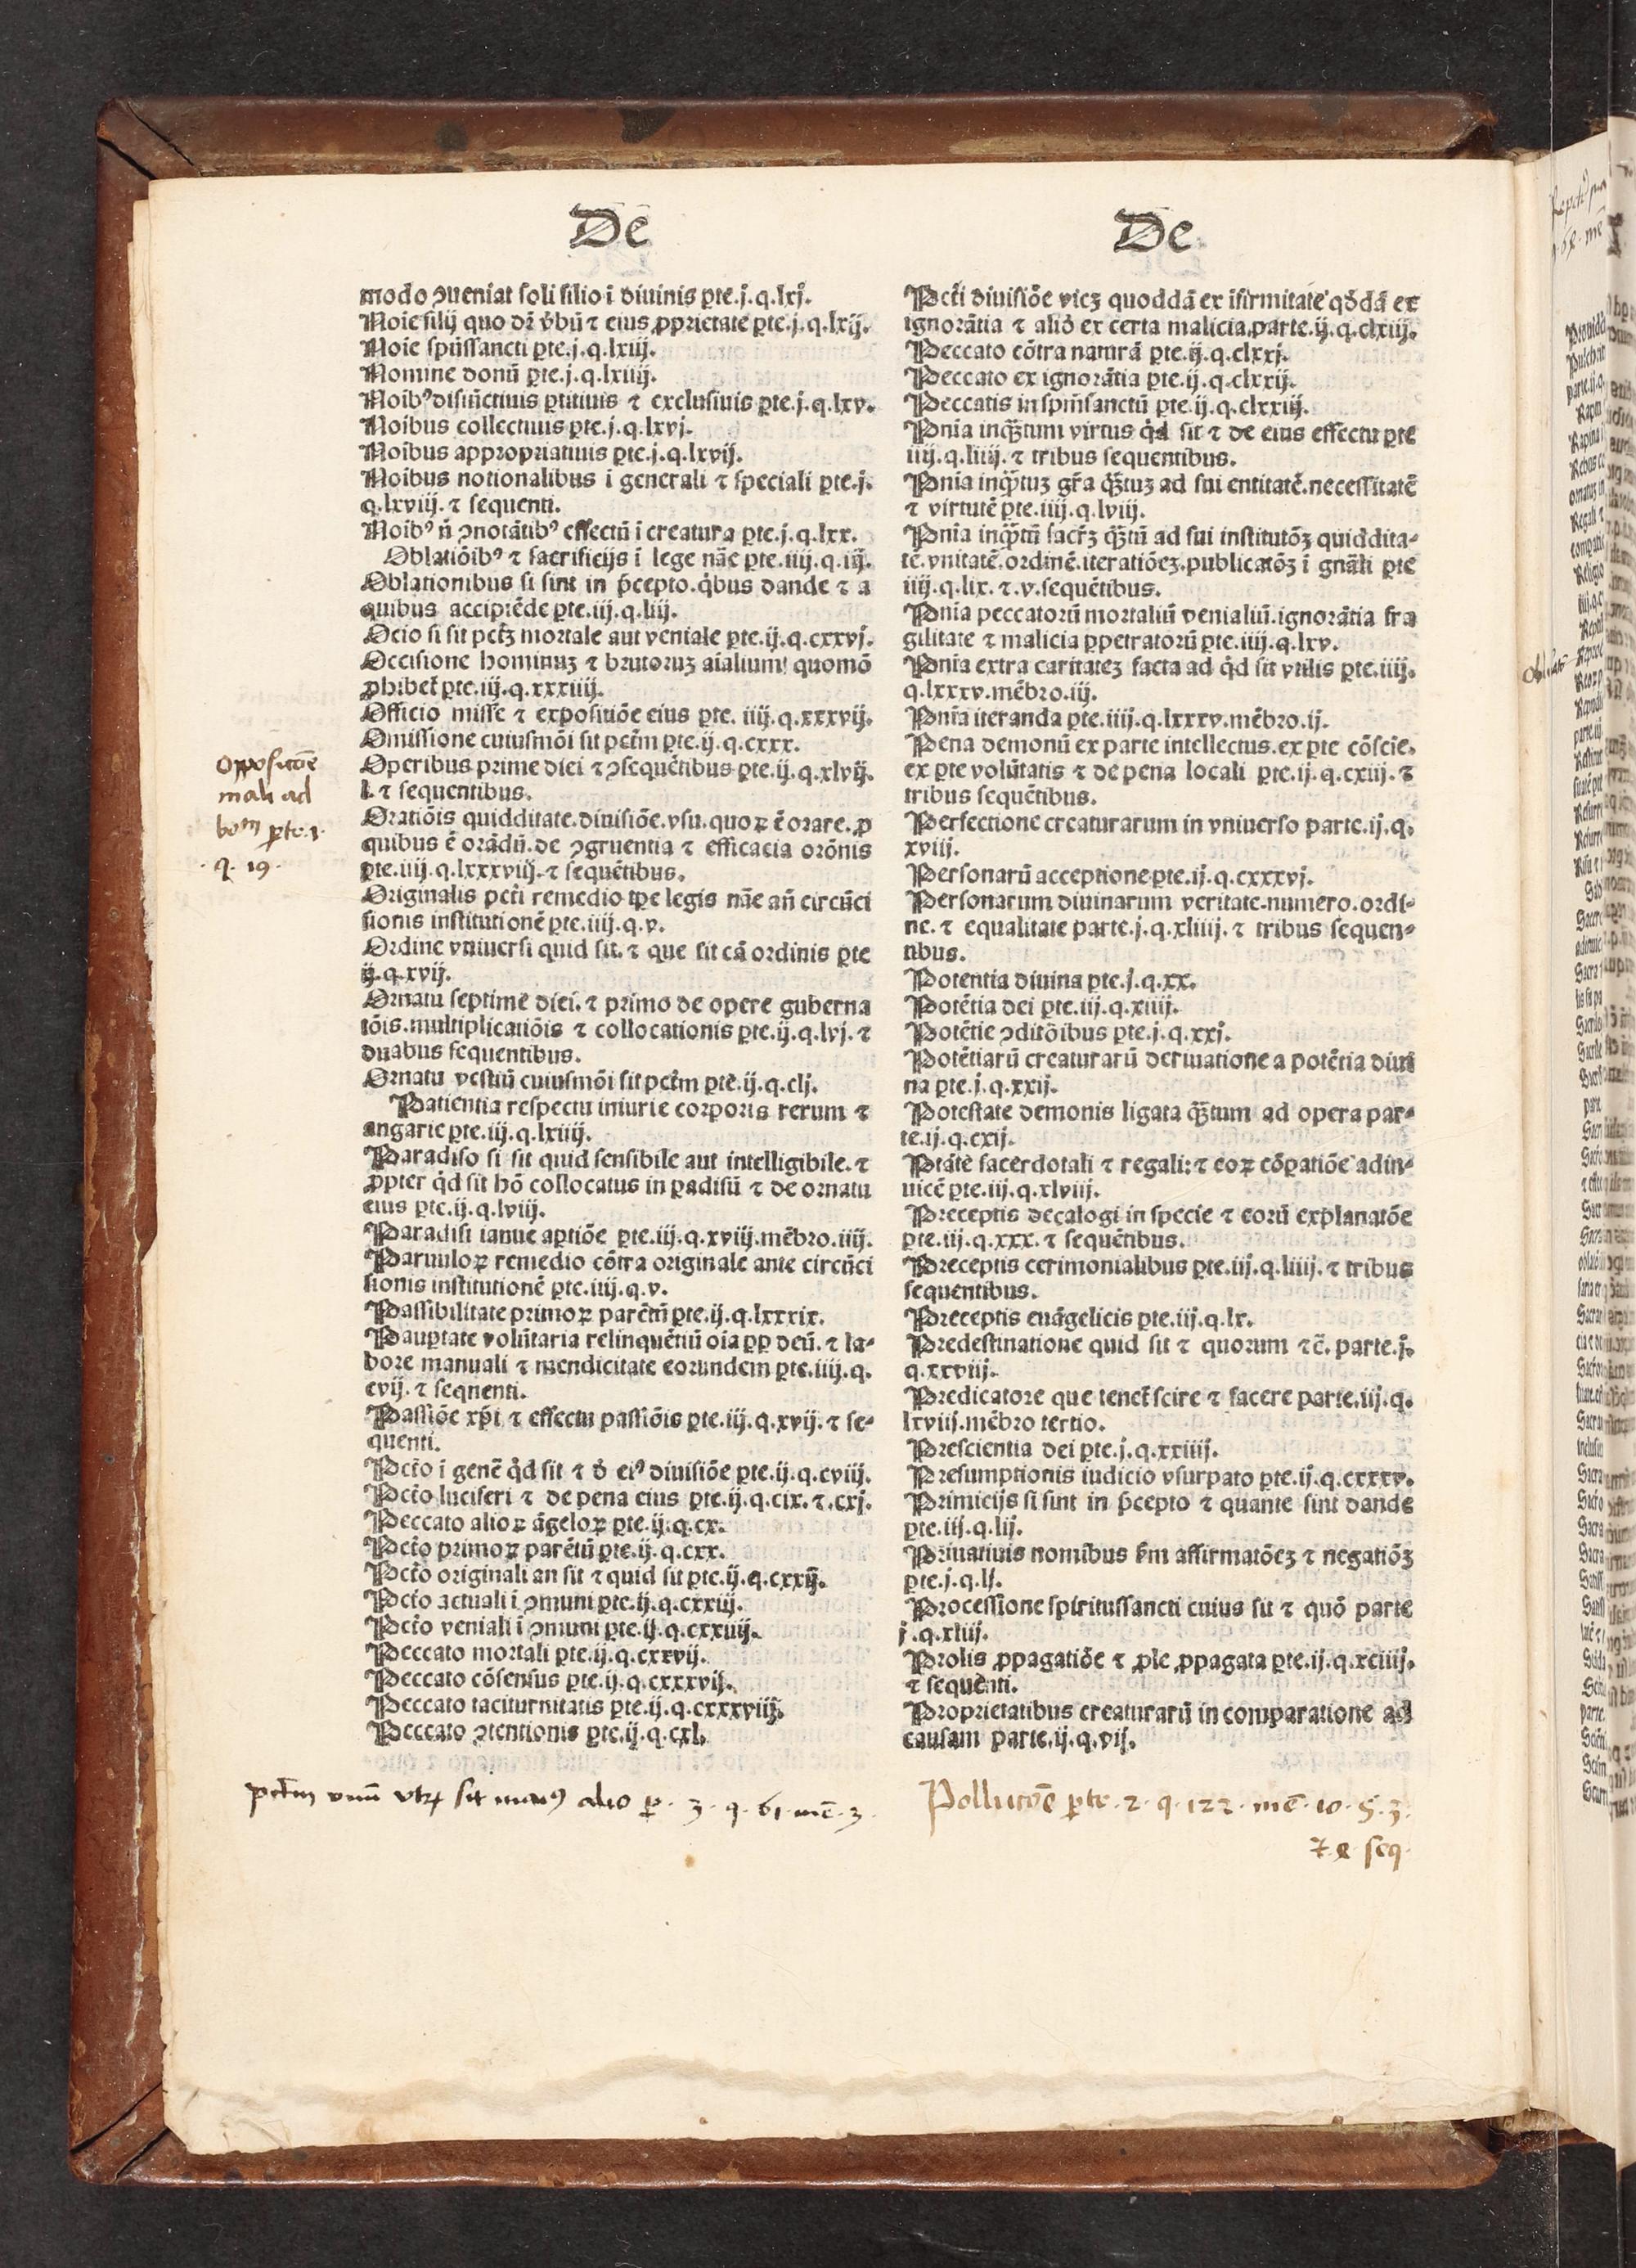 De
modo ꝯueniat soli filio ī diuinis ꝑte.j.q.lxj.
Noīe filij quo dr̄ v̓bū ⁊ eius ꝓprietate ꝑte.j.q.lxij.
Noīe spūssancti ꝑte.j.q.lxiij.
Nomine donū ꝑte.j.q.lxiiij.
Noībꝰ disiūctiuis ꝑtitiuis ⁊ exclusiuis ꝑte.j.q.lxv.
Noībus collectiuis ꝑte.j.q.lxvj.
Noībus appropriatiuis ꝑte.j.q.lxvij.
Noībus notionalibus ī generali ⁊ speciali ꝑte.j.
q.lxviij. ⁊ sequenti.
Noībꝰ ñ ꝯnotātibꝰ effectū ī creatura ꝑte.j.q.lxx.
Oblatiōibꝰ ⁊ sacrificijs ī lege nāe ꝑte.iiij.q.iij.
Oblationibus si sint in p̄cepto.q̇bus dande ⁊ a
quibus accipiēde ꝑte.iij.q.liij.
Ocio si sit pctꝫ mortale aut veniale ꝑte.ij.q.cxxvj.
Occisione hominuꝫ ⁊ brutoruꝫ aīalium! quomō
ꝓhibet̄ ꝑte.iij.q.xxxiiij.
Officio misse ⁊ expositiōe eius ꝑte.iiij.q.xxxvij.
Omissione cuiusmōi sit pctm̄ ꝑte.ij.q.cxxx.
Operibus prime diei ⁊ ꝯsequētibus ꝑte.ij.q.xlvij.
l. ⁊ sequentibus.
Oppositōe
mali ad
boᵐ ꝑte.1.
.q.19.
Oratiōis quidditate.diuisiōe.vsu.quoꝝ ē orare.ꝓ
quibus ē orādū.de ꝯgruentia ⁊ efficacia orōnis
ꝑte.iiij.q.lxxxviij.⁊ sequētibus.
Originalis pcti remedio tꝑe legis nāe añ circūci
sionis institutionē ꝑte.iiij.q.v.
Ordine vniuersi quid sit.⁊ que sit cā ordinis ꝑte
ij.q.xvij.
Ornatu septime diei.⁊ primo de opere guberna
tōis.multiplicatiōis ⁊ collocationis ꝑte.ij.q.lvj.⁊
duabus sequentibus.
Ornatu vestiū cuiusmōi sit pctm̄ ꝑte.ij.q.clj.
Patientia respectu iniurie corporis rerum ⁊
angarie ꝑte.iij.q.lxiiij.
Paradiso si sit quid sensibile aut intelligibile.⁊
ꝓpter q̇d sit hō collocatus in ꝑadisū ⁊ de ornatu
eius ꝑte.ij.q.lviij.
Paradisi ianue aꝑtiōe ꝑte.iij.q.xviij.mēbro.iiij.
Paruuloꝝ remedio cōtra originale ante circūci
sionis institutionē ꝑte.iiij.q.v.
Passibilitate primoꝝ parētū ꝑte.ij.q.lxxxix.
Pauꝑtate volūtaria relinquētiū oīa ꝓꝑ deū.⁊ la-
bore manuali ⁊ mendicitate eorundem ꝑte.iiij.q.
cvij.⁊ seqnenti.
Passiōe xp̄i ⁊ effectu passiōis ꝑte.iij.q.xvij.⁊ se-
quenti.
Pctō ī genē q̇d sit ⁊ d̓ eiꝰ diuisiōe ꝑte.ij.q.cviij.
Pctō luciferi ⁊ de pena eius ꝑte.ij.q.cix.⁊.cxj.
Peccato alioꝝ āgeloꝝ ꝑte.ij.q.cx.
Pctō primoꝝ parētū ꝑte.ij.q.cxx.
Pctō originali an sit ⁊ quid sit ꝑte.ij.q.cxxij.
Pctō actuali ī ꝯmuni ꝑte.ij.q.cxxiij.
Pctō veniali ī ꝯmuni ꝑte.ij.q.cxxiiij.
Peccato mortali ꝑte.ij.q.cxxvij.
Peccato cōsensus ꝑte.ij.q.cxxxvij.
Peccato taciturnitatis ꝑte.ij.q.cxxxviij.
Peccato ꝯtentionis ꝑte.ij.q.cxl.
pctm̄ vnū vtꝝ sit maiꝰ alio ꝑ.3.q.61.mē.3.
De
Pcti diuisiōe vicꝫ quoddā ex īfirmitate qd̓dā ex
ignorātia ⁊ aliō ex certa malicia parte.ij.q.clxiij.
Peccato cōtra naturā ꝑte.ij.q.clxxj.
Peccato ex ignorātia ꝑte.ij.q.clxxij.
Peccatis in spm̄sanctū ꝑte.ij.q.clxxiij.
Pnīa inqꝫtum virtus q̇d sit ⁊ de eius effectu ꝑte
iiij.q.liiij.⁊ tribus sequentibus.
Pnīa inqꝫtuꝫ gr̄a qꝫtuꝫ ad sui entitatē.necessitatē
⁊ virtutē ꝑte.iiij.q.lviij.
Pnīa inqꝫtū sacrꝫ qꝫtū ad sui institutōꝫ quiddita-
tē.vnitatē.ordinē.iteratiōeꝫ.publicatōꝫ ī gnāli ꝑte
iiij.q.lix.⁊.v.sequētibus.
Pnīa peccatorū mortaliū venialiū.ignorātia fra
gilitate ⁊ malicia ꝑpetratorū ꝑte.iiij.q.lxv.
Pnīa extra caritateꝫ facta ad q̇d sit vtilis ꝑte.iiij.
q.lxxxv.mēbro.iij.
Pnīa iteranda ꝑte.iiij.q.lxxxv.mēbro.ij.
Pena demonū ex parte intellectus.ex ꝑte cōscīe.
ex ꝑte volūtatis ⁊ de pena locali ꝑte.ij.q.cxiij.⁊
tribus sequētibus.
Perfectione creaturarum in vniuerso parte.ij.q.
xviij.
Personarū acceptione ꝑte.ij.q.cxxxvj.
Personarum diuinarum veritate.numero.ordi-
ne.⁊ equalitate parte.j.q.xliiij.⁊ tribus sequen-
tibus.
Potentia diuina ꝑte.j.q.xx.
Potētia dei ꝑte.iij.q.xiiij.
Potētie ꝯditōibus ꝑte.j.q.xxj.
Potētiarū creaturarū deriuatione a potētia diui
na ꝑte.j.q.xxij.
Potestate demonis ligata qꝫtum ad opera par-
te.ij.q.cxij.
Ptāte sacerdotali ⁊ regali:⁊ eoꝝ cōꝑatiōe adin-
uicē ꝑte.iij.q.xlviij.
Preceptis decalogi in specie ⁊ eorū explanatōe
ꝑte.iij.q.xxx.⁊ sequētibus.
Preceptis cerimonialibus ꝑte.iij.q.liiij.⁊ tribus
sequentibus.
Preceptis euāgelicis ꝑte.iij.q.lx.
Predestinatione quid sit ⁊ quorum ⁊c̄.parte.j.
q.xxviij.
Predicatore que tenet̄ scire ⁊ facere parte.iij.q.
lxviij.mēbro tertio.
Prescientia dei ꝑte.j.q.xxiiij.
Presumptionis iudicio vsurpato ꝑte.ij.q.cxxxv.
Primicijs si sint in p̄cepto ⁊ quante sint dande
ꝑte.iij.q.lij.
Priuatiuis nomībus ẜm affirmatōeꝫ ⁊ negatiōꝫ
ꝑte.j.q.lj.
Processione spiritussancti cuius sit ⁊ quō parte
j.q.xliij.
Prolis ꝓpagatiōe ⁊ ꝓle ꝓpagata ꝑte.ij.q.xciiij.
⁊ sequēti.
Proprietatibus creaturarū in comparatione ad
causam parte.ij.q.vij.
Pollutōe ꝑte.2.q.122.mē.10.§.3.
⁊ seq.